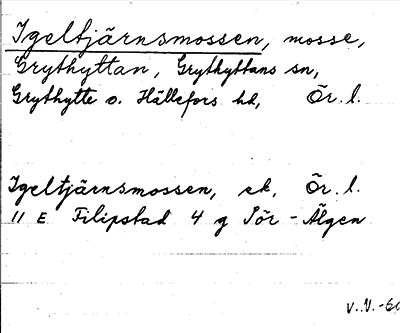 Igeltjärnsmossen, mosse,
Grythyttan, Grythyttans sn,
Grythytte o. Hällefors hd, Ör. l.
Igeltjärnsmossen, ek, Ör. l.
11 E Filipstad 4 g Sör-Älgen
V. V. -60